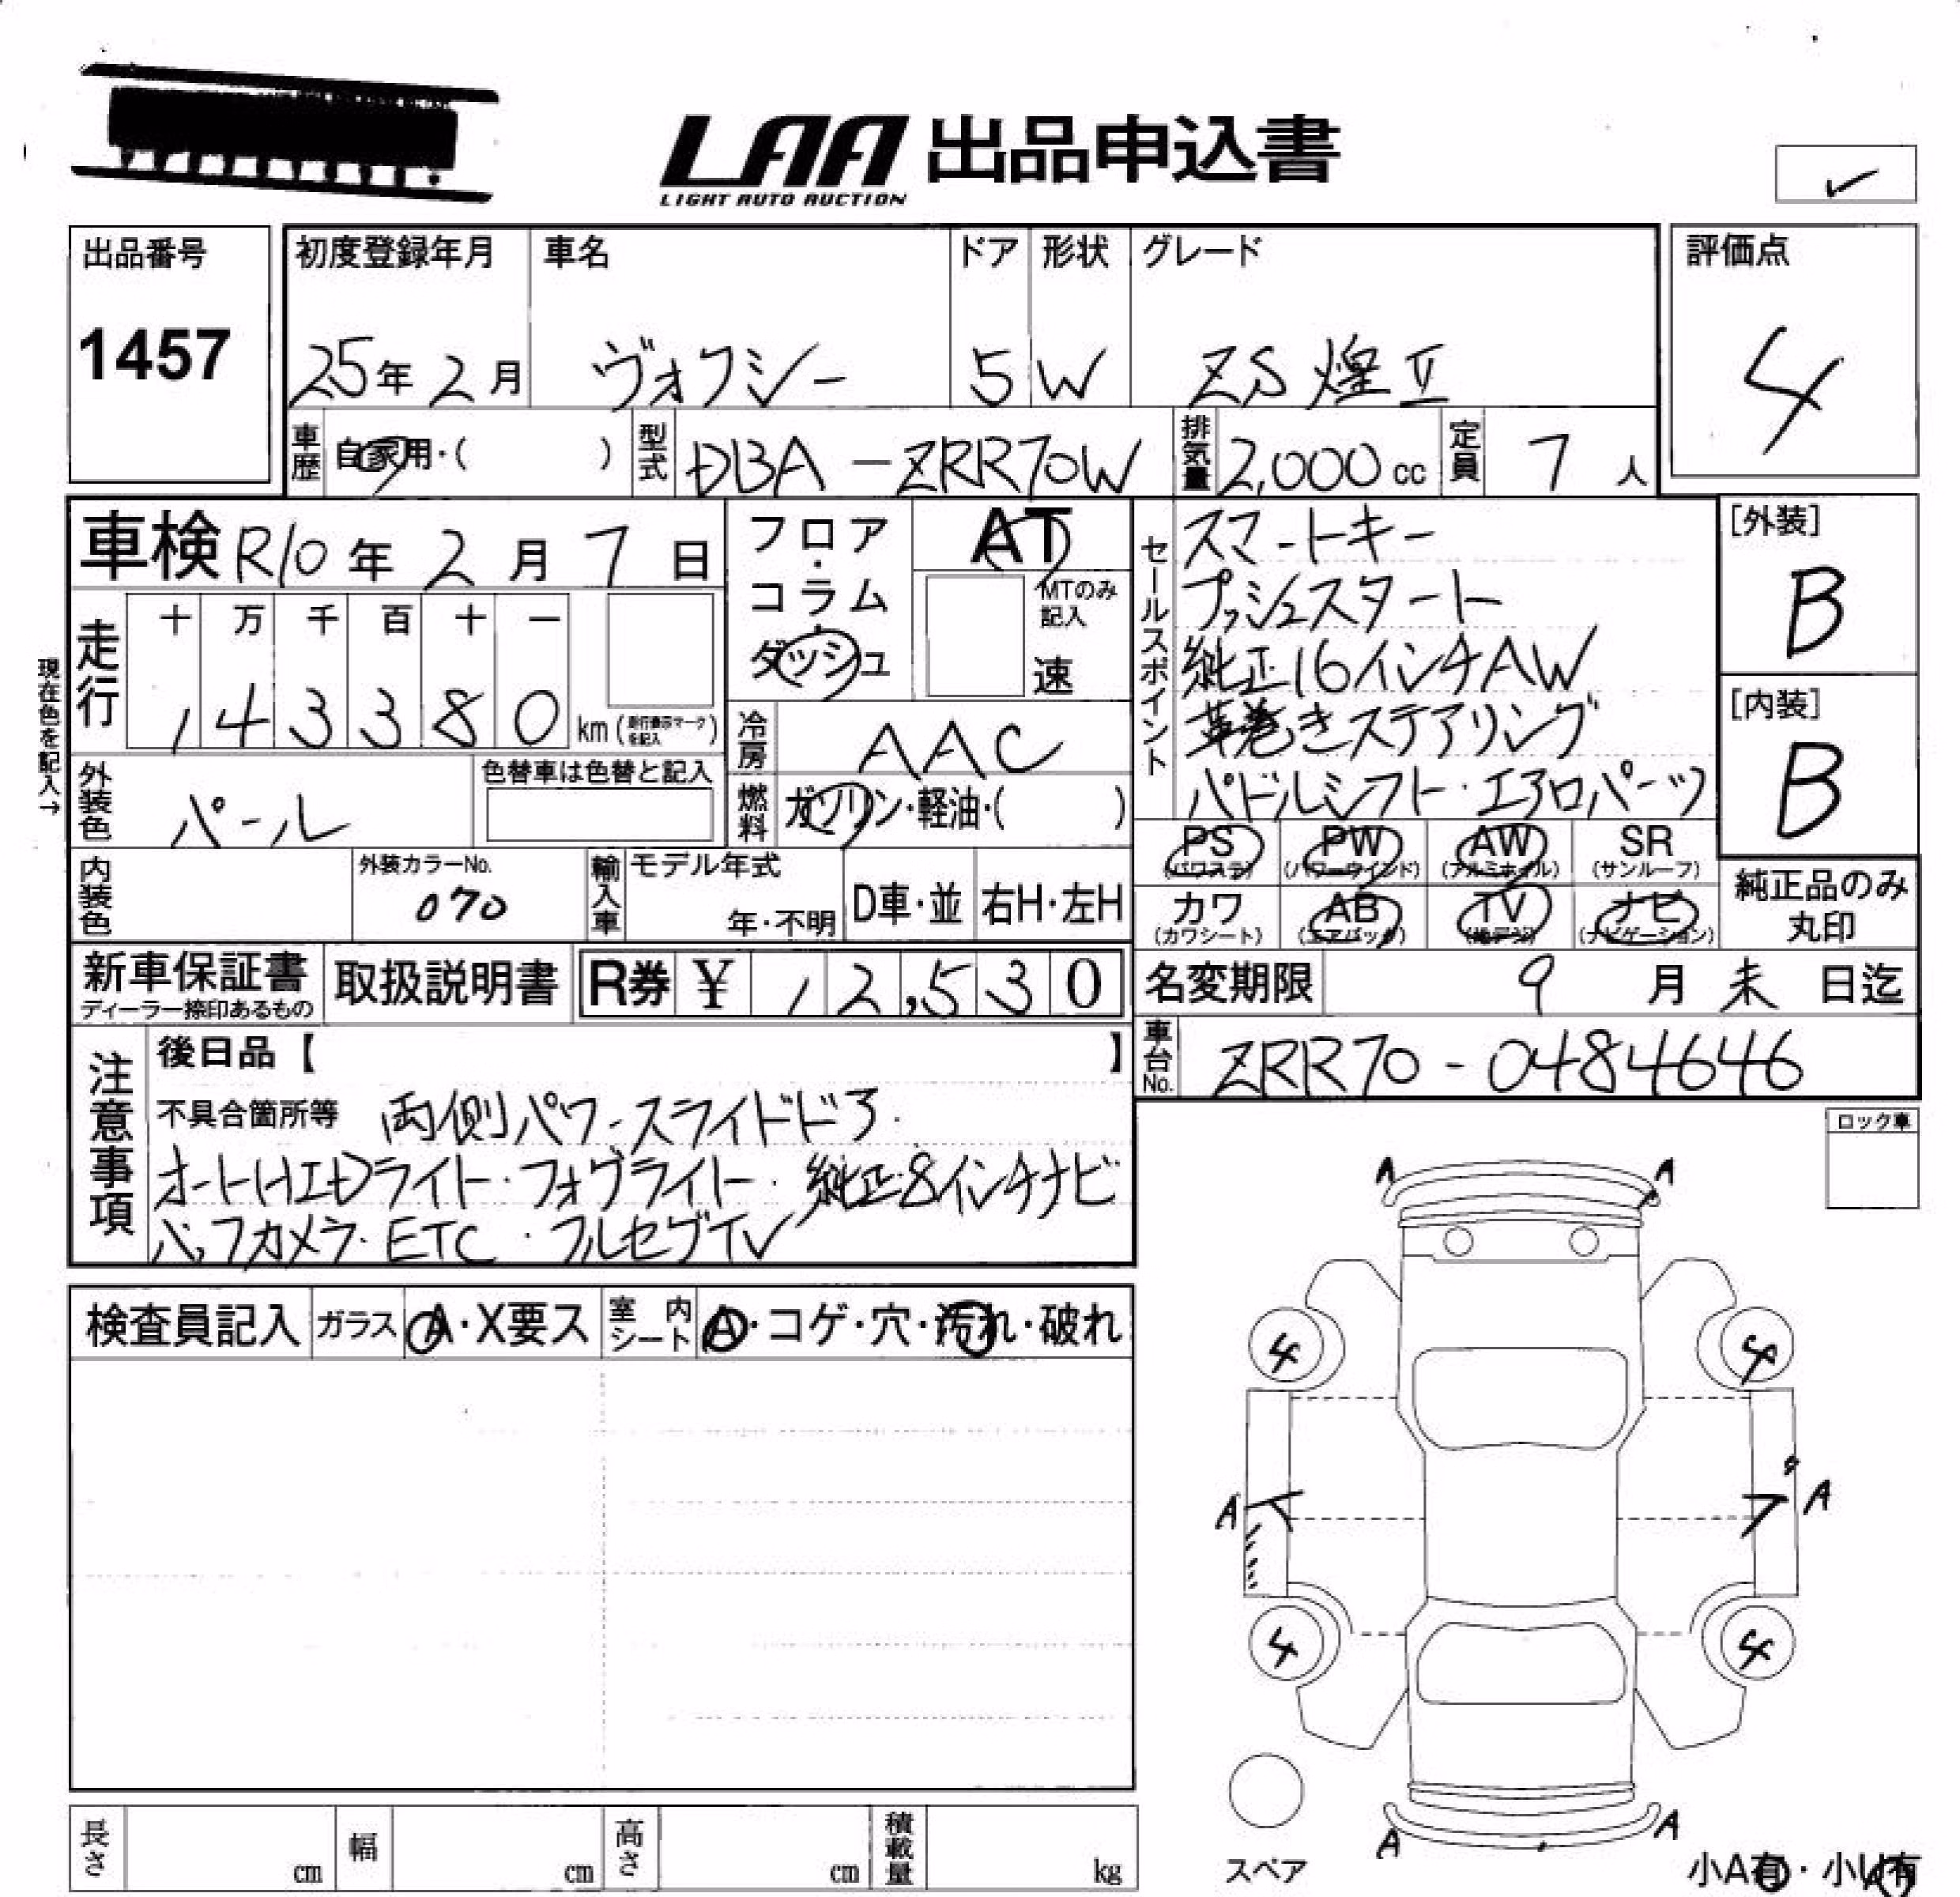 LAA 出品申込書
LIGHT AUTO AUCTION
✓
出品番号
1457
初度登録年月
25年 2月
車名
ヴォクシー
ドア
5
形状
W
グレード
ZS 煌Ⅱ
評価点
4
車歴 自家用・( )
型式 DBA-ZRR70W
排気量 2,000 cc
定員 7 人
車検 R10年 2月 7日
フロア・コラム・ダッシュ
AT
MTのみ記入
速
セールスポイント
スマートキー
プッシュスタート
純正16インチAW
革巻きステアリング
パドルシフト・エアロパーツ
[外装]
B
[内装]
B
現在色を記入→
走行
十 万 千 百 十 一
1 4 3 3 8 0 km (走行表示マークを記入)
冷房 AAC
外装色 パール
色替車は色替と記入
燃料 ガソリン・軽油・( )
PS (パワステ)
PW (パワーウインド)
AW (アルミホイル)
SR (サンルーフ)
カワ (カワシート)
AB (エアバック)
TV (地デジ)
ナビ (ナビゲーション)
純正品のみ丸印
内装色
外装カラーNo.
070
輸入車
モデル年式
年・不明
D車・並
右H・左H
新車保証書
ディーラー捺印あるもの
取扱説明書
R券 ¥ 12,530
名変期限 9月 末 日迄
車台No. ZRR70-0484646
注意事項
後日品【 】
不具合箇所等 両側パワースライドドア
オートHIDライト・フォグライト・純正8インチナビ
バックカメラ・ETC・フルセグTV
ロック車
検査員記入
ガラス A・X要ス
室内シート A・コゲ・穴・汚れ・破れ
A A
4 4
A A
4 4
A A
スペア
小A有・小U有
長さ cm
幅 cm
高さ cm
積載量 kg